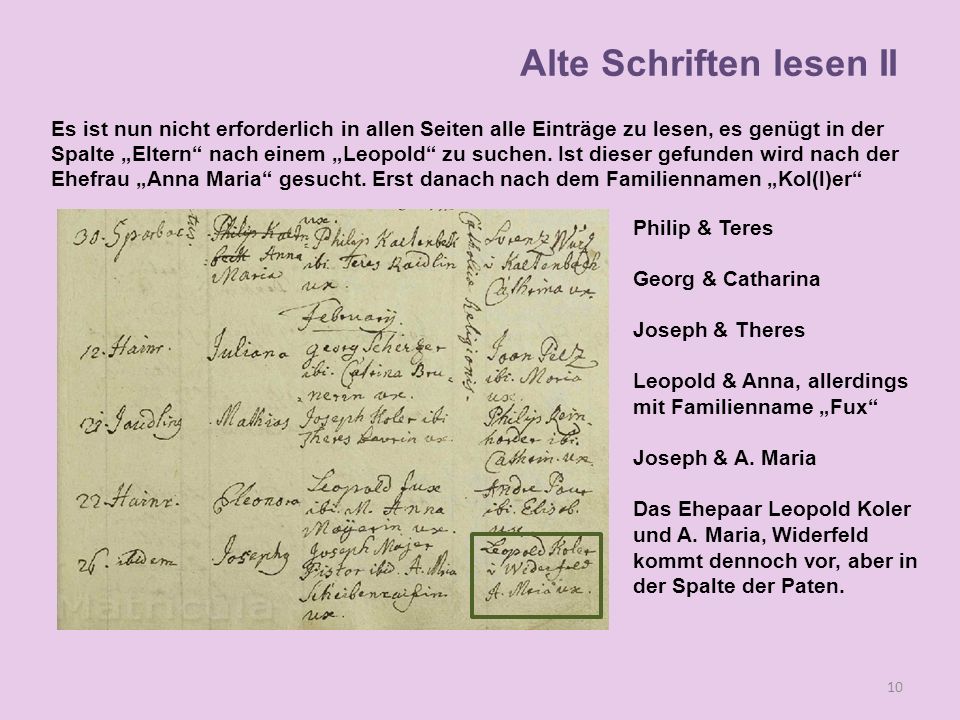 Alte Schriften lesen II
Es ist nun nicht erforderlich in allen Seiten alle Einträge zu lesen, es genügt in der
Spalte „Eltern“ nach einem „Leopold“ zu suchen. Ist dieser gefunden wird nach der
Ehefrau „Anna Maria“ gesucht. Erst danach nach dem Familiennamen „Kol(l)er“
ux.
30. Sparbac
Philip Kaltn
beck Anna
Maria
Philip Kaltenbek
ibi Teres Raidlin
ux.
Catholicae Religionis.
Lorenz Würg
Kaltenbech
Cathrina ux.
February.
12. Hainr.
Juliana
georg Scherzer
ibi. Catrina Bru-
nerin ux.
Joan Pelz
ibi. Maria
ux.
21. Jaudling
Mathias
Joseph Koler ibi
Theres ux.
Philip Rein
horder ibi.
Cathein. ux.
22. Hainr.
Eleonora
Leopold fux
ibi. M. Anna
Mayerin ux.
Andre Paur
ibi. Elisab.
ux.
26. ibidem
Josepho
Joseph Majer
Pistor ibid. A. Mia
ux.
Leopold Koler
Widerfeld
A. Mria ux.
Matricula
Philip & Teres
Georg & Catharina
Joseph & Theres
Leopold & Anna, allerdings
mit Familienname „Fux“
Joseph & A. Maria
Das Ehepaar Leopold Koler
und A. Maria, Widerfeld
kommt dennoch vor, aber in
der Spalte der Paten.
10